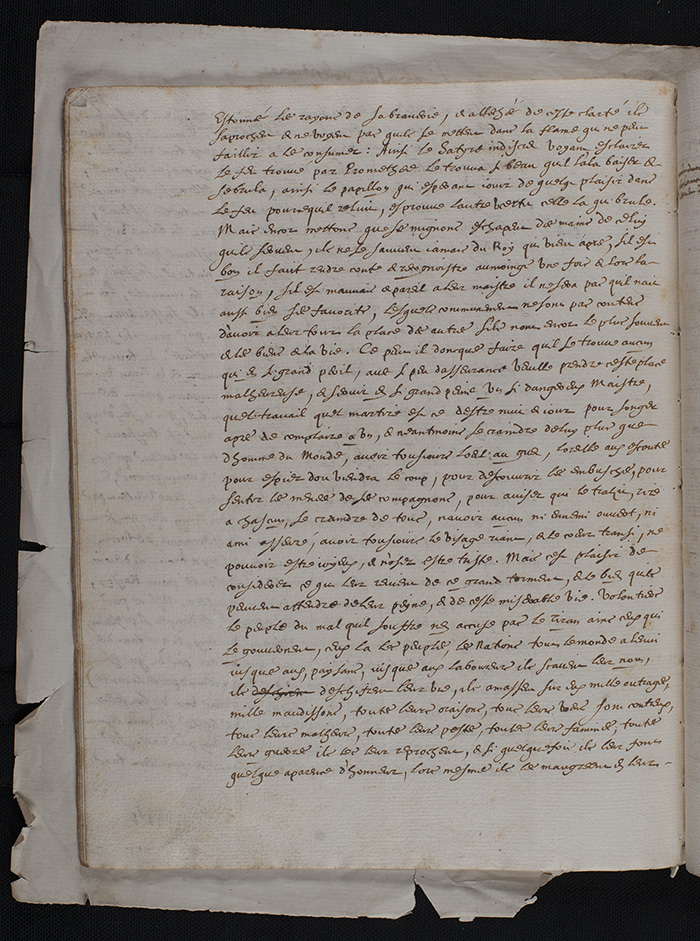 Estonné les rayons de sa braverie, & allechés de ceste clarté ils
s'aprochent & ne voyent pas quils se mettent dans la flame qui ne peut
faillir a les consumer : Ainsi le Satyre indiscret voyant esclairer
le feu trouvé par Promethee le trouva si beau quil l'ala baiser &
se brula, ainsi le papillon qui esperant iouir de quelque plaisir dans
le feu pource quil reluit, esprouve l'autre vertu celle la qui brule.
Mais encor mettons que ses mignons eschapent des mains de celuy
quils servent, ils ne se sauvent iamais du Roy qui vient apres, sil est
bon il faut rendre conte & recognoistre aumoins une fois & lors la
raison, sil est mauvais & pareil a leur maistre il ne sera pas quil nait
aussi bien ses favorits, lesquels communement ne sont pas contens
d'avoir a leur tour la place des autres sils nont encor le plus souvent
& les biens & la vie. Ce peut il doncque faire quil se trouve aucun
qui en si grand peril, avec si peu dasseurance veuille prendre ceste place
malheureuse, & servir en si grand peine un si dangereux maistre,
quel travail quel martire est ce destre nuit & iour pour songer
apres de complaire a un, & neantmoins se craindre deluy plus que
d'homme du Monde, avoir tousiours loeil au guet, loreille aux escoutes
pour espier dou viendra le coup, pour descouvrir les embusches, pour
sentir les menees de ses compagnons, pour aviser qui le trahit, rire
a chascun, se craindre de tous, navoir aucun ni ennemi ouvert, ni
ami asseuré, avoir tousiours le visage riant, & le coeur transi, ne
pouvoir estre ioyeux, & noser estre triste. Mais cest plaisir de
considerer ce qui leur revient de ce grand torment, & le bien quils
peuvent attendre de leur peyne, & de ceste miserable vie. Volontiers
le peuple du mal quil souffre nen accuse pas le tiran ains ceux qui
le gouvernent, ceux la les peuples les Nations tout le monde a lenvi
iusque aux paysans, iusque aux laboureurs ils scavent leur nom,
ils deschifrent leur vie, ils amassent sur eux mille outrages,
mille maudissons, toutes leurs oraisons, tous leurs voeus sont contr'eux,
tous leurs malheurs, toutes leurs pestes, toutes leurs famines, toutes
leurs guerres ils les leur reprochent, & si quelquefois ils leur font
quelque aparence d'honneur, lors mesmes ils les maugreent en leur